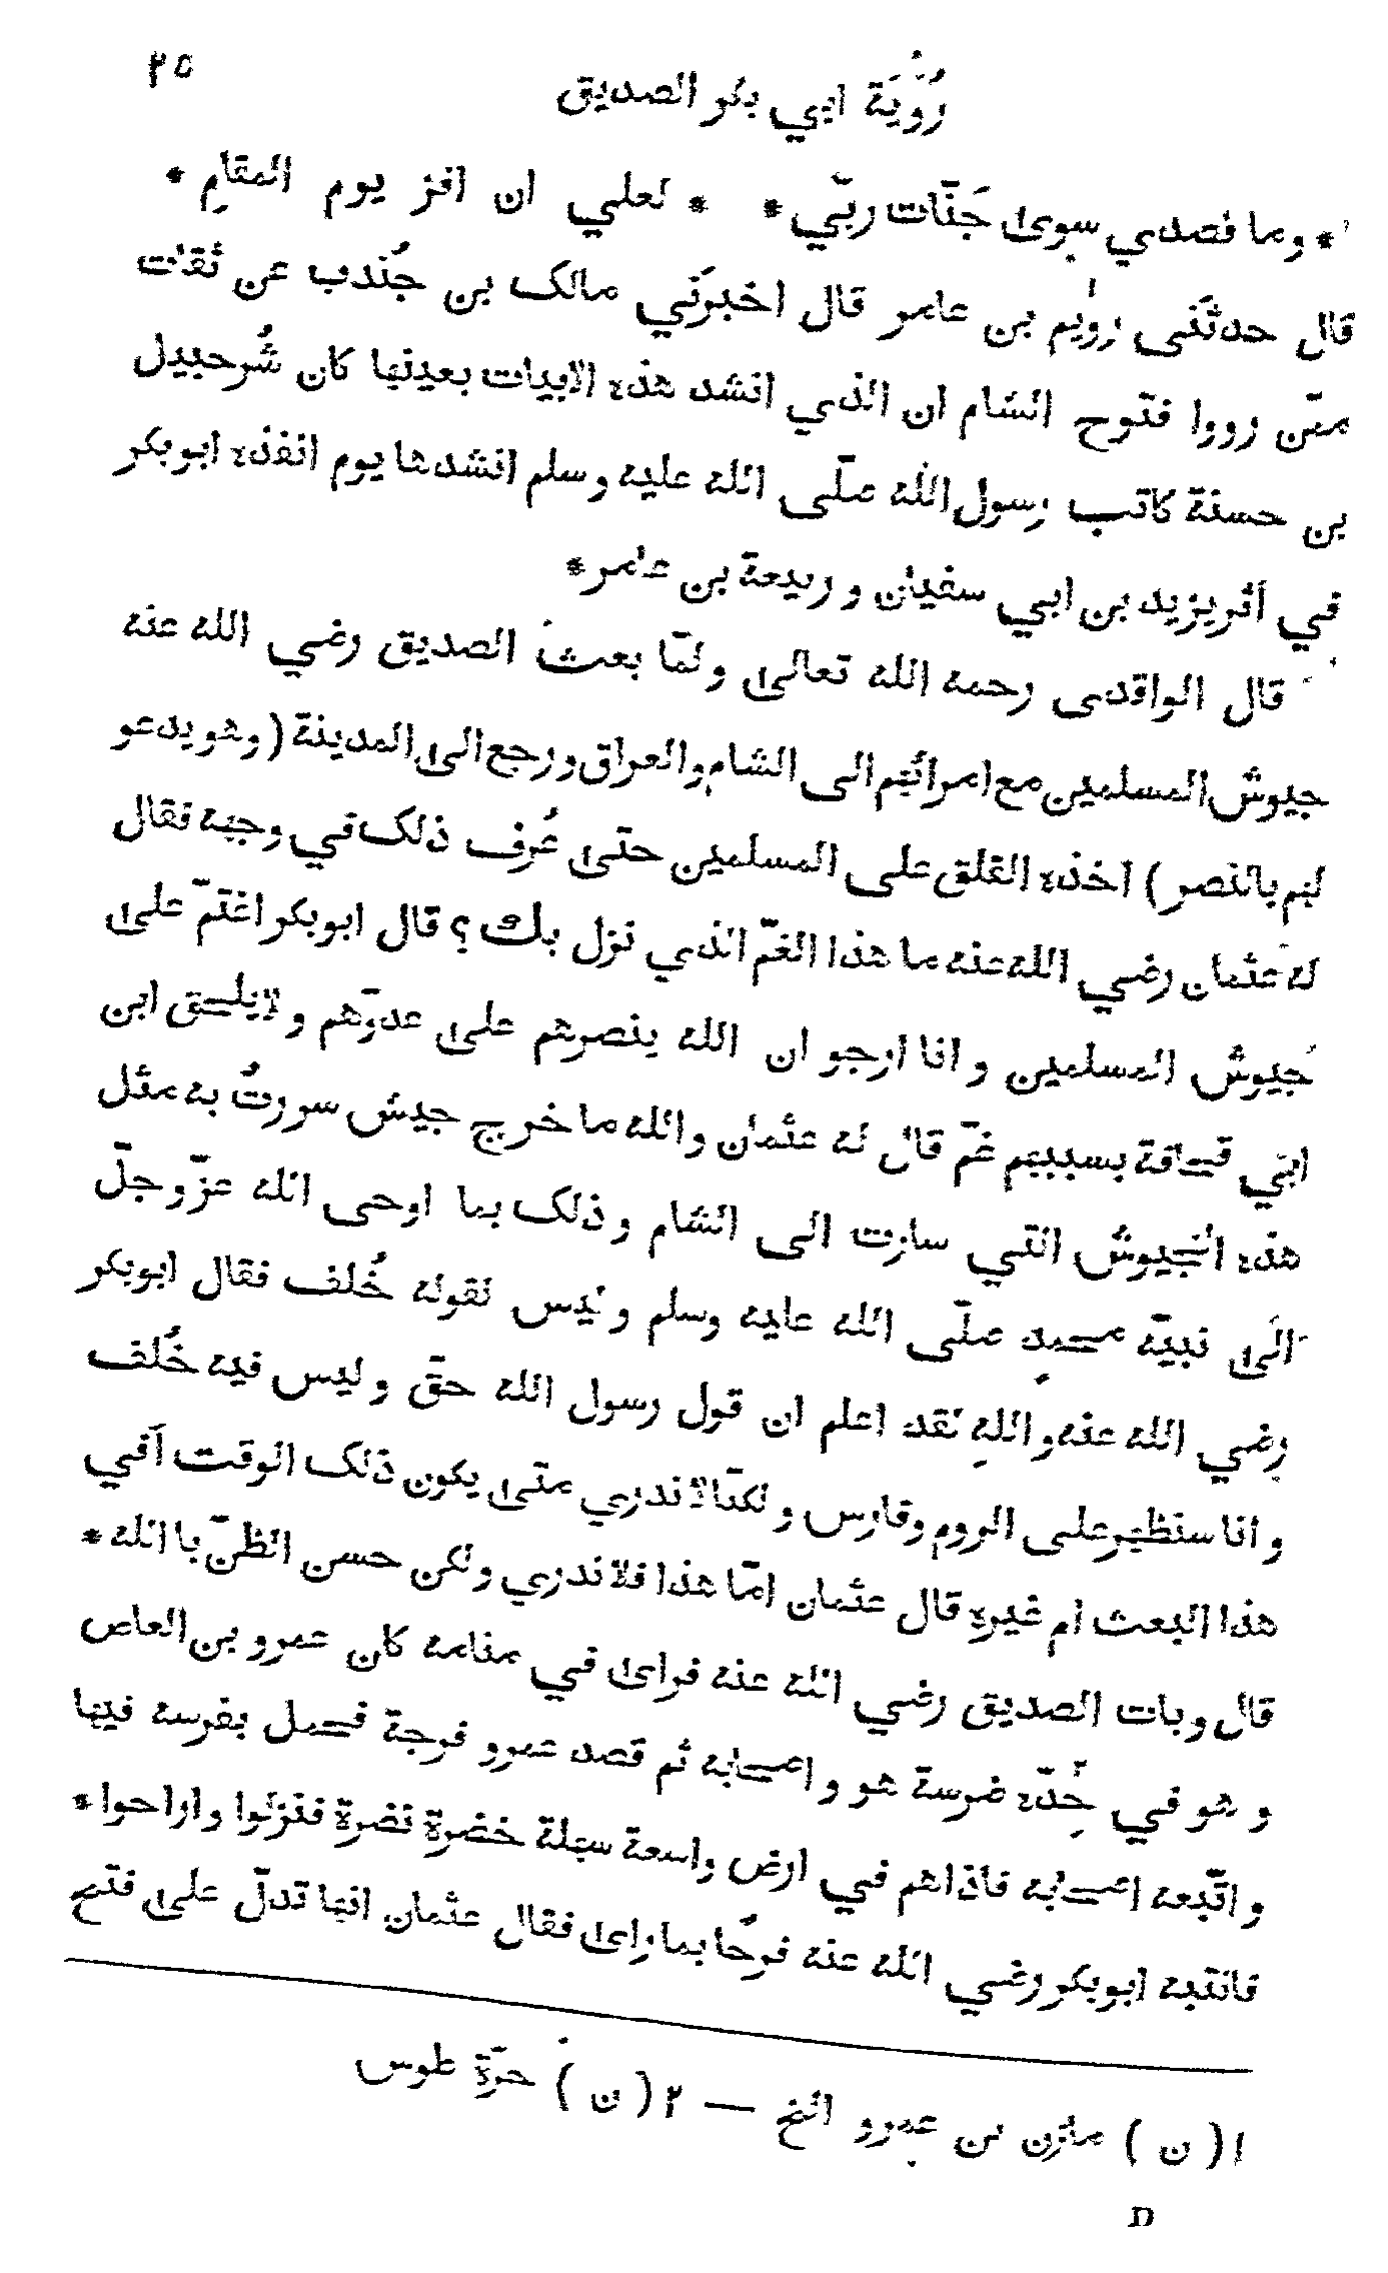 ٢٥
رُوْيَة ابي بكر الصديق
* وما قصدي سوى جَنّات ربّي * * لعلي ان افز يوم المقام *
قال حدثَني رويم بن عامر قال اخبرَني مالك بن جُندب عن ثقات
ممّن رووا فتوح الشام ان الذي انشد هذه الابيات بعينها كان شُرحبيل
بن حسنة كاتب رسول الله صلّى الله عليه وسلم انشدها يوم انفذه ابوبكر
في اثريزيد بن ابي سفيان و ربيعة بن عامر *
قال الواقدى رحمه الله تعالى ولمّا بعث الصديق رضي الله عنه
جيوش المسلمين مع امرائهم الى الشام والعراق ورجع الى المدينة ( وهو يدعو
لهم بالنصر ) اخذه القلق على المسلمين حتى عُرف ذلك في وجهه فقال
له عثمان رضي الله عنه ما هذا الغمّ الذي نزل بك ؟ قال ابوبكر اغتمّ على
جيوش المسلمين و انا ارجو ان الله ينصرهم على عدوّهم و لايلحق ابن
ابي قحافة بسببهم غمّ قال له عثمان والله ما خرج جيش سررتُ به مثل
هذه الجيوش التي سارت الى الشام و ذلك بما اوحى الله عزّوجلّ
الى نبيّه محمدٍ صلّى الله عليه وسلم و ليس لقوله خُلف فقال ابوبكر
رضي الله عنه واللهِ لقد اعلم ان قول رسول الله حقّ و ليس فيه خُلف
و انا سنظهر على الروم وفارس و لكنّا لا ندري متى يكون ذلك الوقت أفي
هذا البعث ام غيره قال عثمان امّا هذا فلا ندري ولكن حسن الظنّ با الله *
قال وبات الصديق رضي الله عنه فرأى في منامه كان عمرو بن العاص
و هو في حِدّه ضرسة هو و اصحابه ثم قصد عمرو فرجة فحمل بفرسه فيها
و اتّبعه اصحابه فاذاهم في ارض واسعة سهلة خضرة نضرة فنزلوا واراحوا *
فانتبه ابوبكر رضي الله عنه فرحًا بما رأى فقال عثمان انها تدلّ على فتح
١ ( ن ) مازن بن عمرو الخ — ٢ ( ن ) حرّة طوس
D